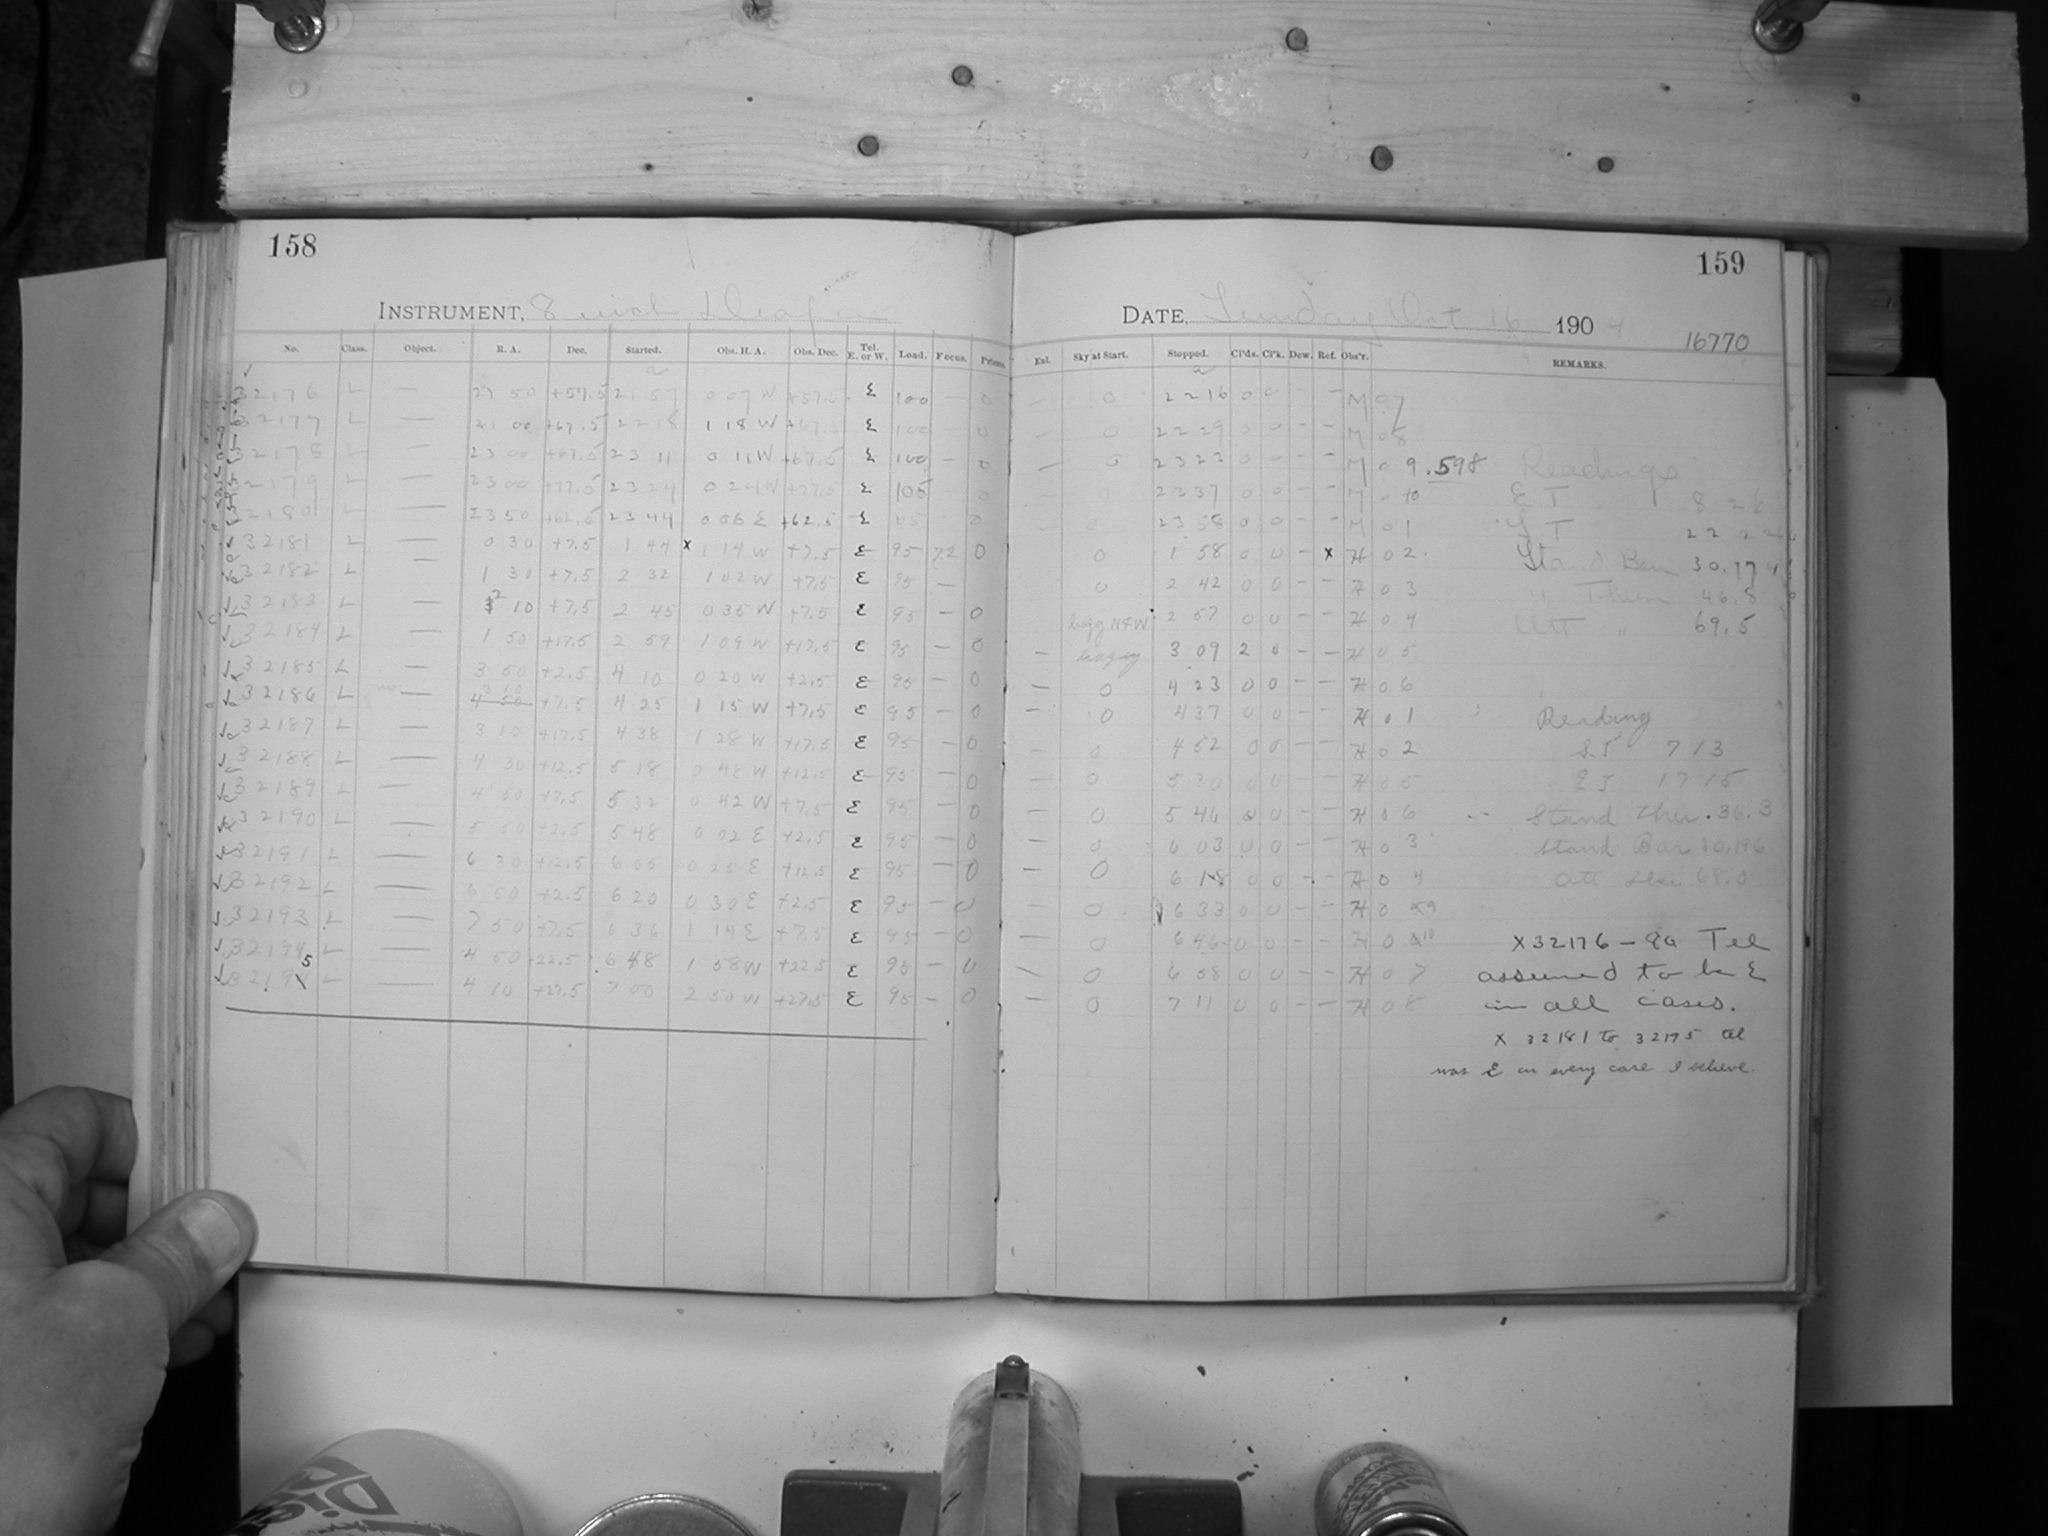 158
INSTRUMENT, 8 inch Draper
No. Class. Object. R. A. Dec. Started. Obs. H. A. Obs. Dec. Tel. E. or W. Load. Focus. Prisms.
32176 L — 21 50 +57.5 21 57 0 07 W +57.5 E 100 — 0
32177 L — 21 00 +67.5 22 18 1 18 W +67.5 E 100 — 0
32178 L — 23 00 +67.5 23 11 0 11 W +67.5 E 100 — 0
32179 L — 23 00 +77.5 23 24 0 24 W +77.5 E 105 0
32180 L — 23 50 +62.5 23 44 0 06 E +62.5 E 05 0
32181 L — 0 30 +7.5 1 44 x 1 14 W +7.5 E 95 7.2 0
32182 L — 1 30 +7.5 2 32 1 02 W +7.5 E 95 —
32183 L — 2 10 +7.5 2 45 0 35 W +7.5 E 95 — 0
32184 L — 1 50 +17.5 2 59 1 09 W +17.5 E 95 — 0
32185 L — 3 50 +2.5 4 10 0 20 W +2.5 E 95 — 0
32186 L — 3 10 4 50 +7.5 4 25 1 15 W +7.5 E 95 — 0
32187 L — 3 10 +17.5 4 38 1 28 W +17.5 E 95 — 0
32188 L — 4 30 +12.5 5 18 0 48 W +12.5 E 95 — 0
32189 L — 4 50 +7.5 5 32 0 42 W +7.5 E 95 — 0
32190 L — 5 50 +2.5 5 48 0 02 E +2.5 E 95 — 0
32191 L — 6 30 +12.5 6 05 0 25 E +12.5 E 95 — 0
32192 L — 6 50 +2.5 6 20 0 30 E +2.5 E 95 — 0
32193 L — 7 50 +7.5 6 36 1 14 E +7.5 E 95 — 0
32194 L — 4 50 +22.5 6 48 1 58 W +22.5 E 95 — 0
32195 L — 4 10 +27.5 7 00 2 50 W +27.5 E 95 — 0
159
DATE, Sunday Oct 16 1904
16770
Exl. Sky at Start. Stopped. Cl'ds. Cl'k. Dew. Ref. Obs'r. REMARKS.
— 0 22 16 0 0 — — M 07
— 0 22 29 0 0 — — M 08
— 0 23 22 0 0 — — M 09 .598 Readings
23 37 0 0 — — M 0 10 E T 8 26
0 23 58 0 0 — — M 01 S T 22 22
0 1 58 0 0 — x H 02 Stand Bar 30.174
0 2 42 0 0 — — H 03 " Ther 46.8
hazy N & W 2 57 0 0 — — H 04 Att " 69.5
— hazy 3 09 2 0 — — H 05
— 0 4 23 0 0 — — H 06
— 0 4 37 0 0 — — H 01 Reading
— 0 4 52 0 0 — — H 02 S.T 7 13
— 0 5 30 0 0 — — H 05 E T 17 15
— 0 5 46 0 0 — — H 06 Stand Ther. 36.3
— 0 6 03 0 0 — — H 03 Stand Bar 30.196
— 0 6 18 0 0 — — H 04 Att ther 68.0
— 0 6 33 0 0 — — H 0 9
— 0 6 46 0 0 — — H 0 10 x 32176 – 80 Tel
— 0 6 58 0 0 — — H 07 assumed to be E
— 0 7 11 0 0 — — H 08 in all cases.
x 32181 to 32195 tel
was E in every case I believe.